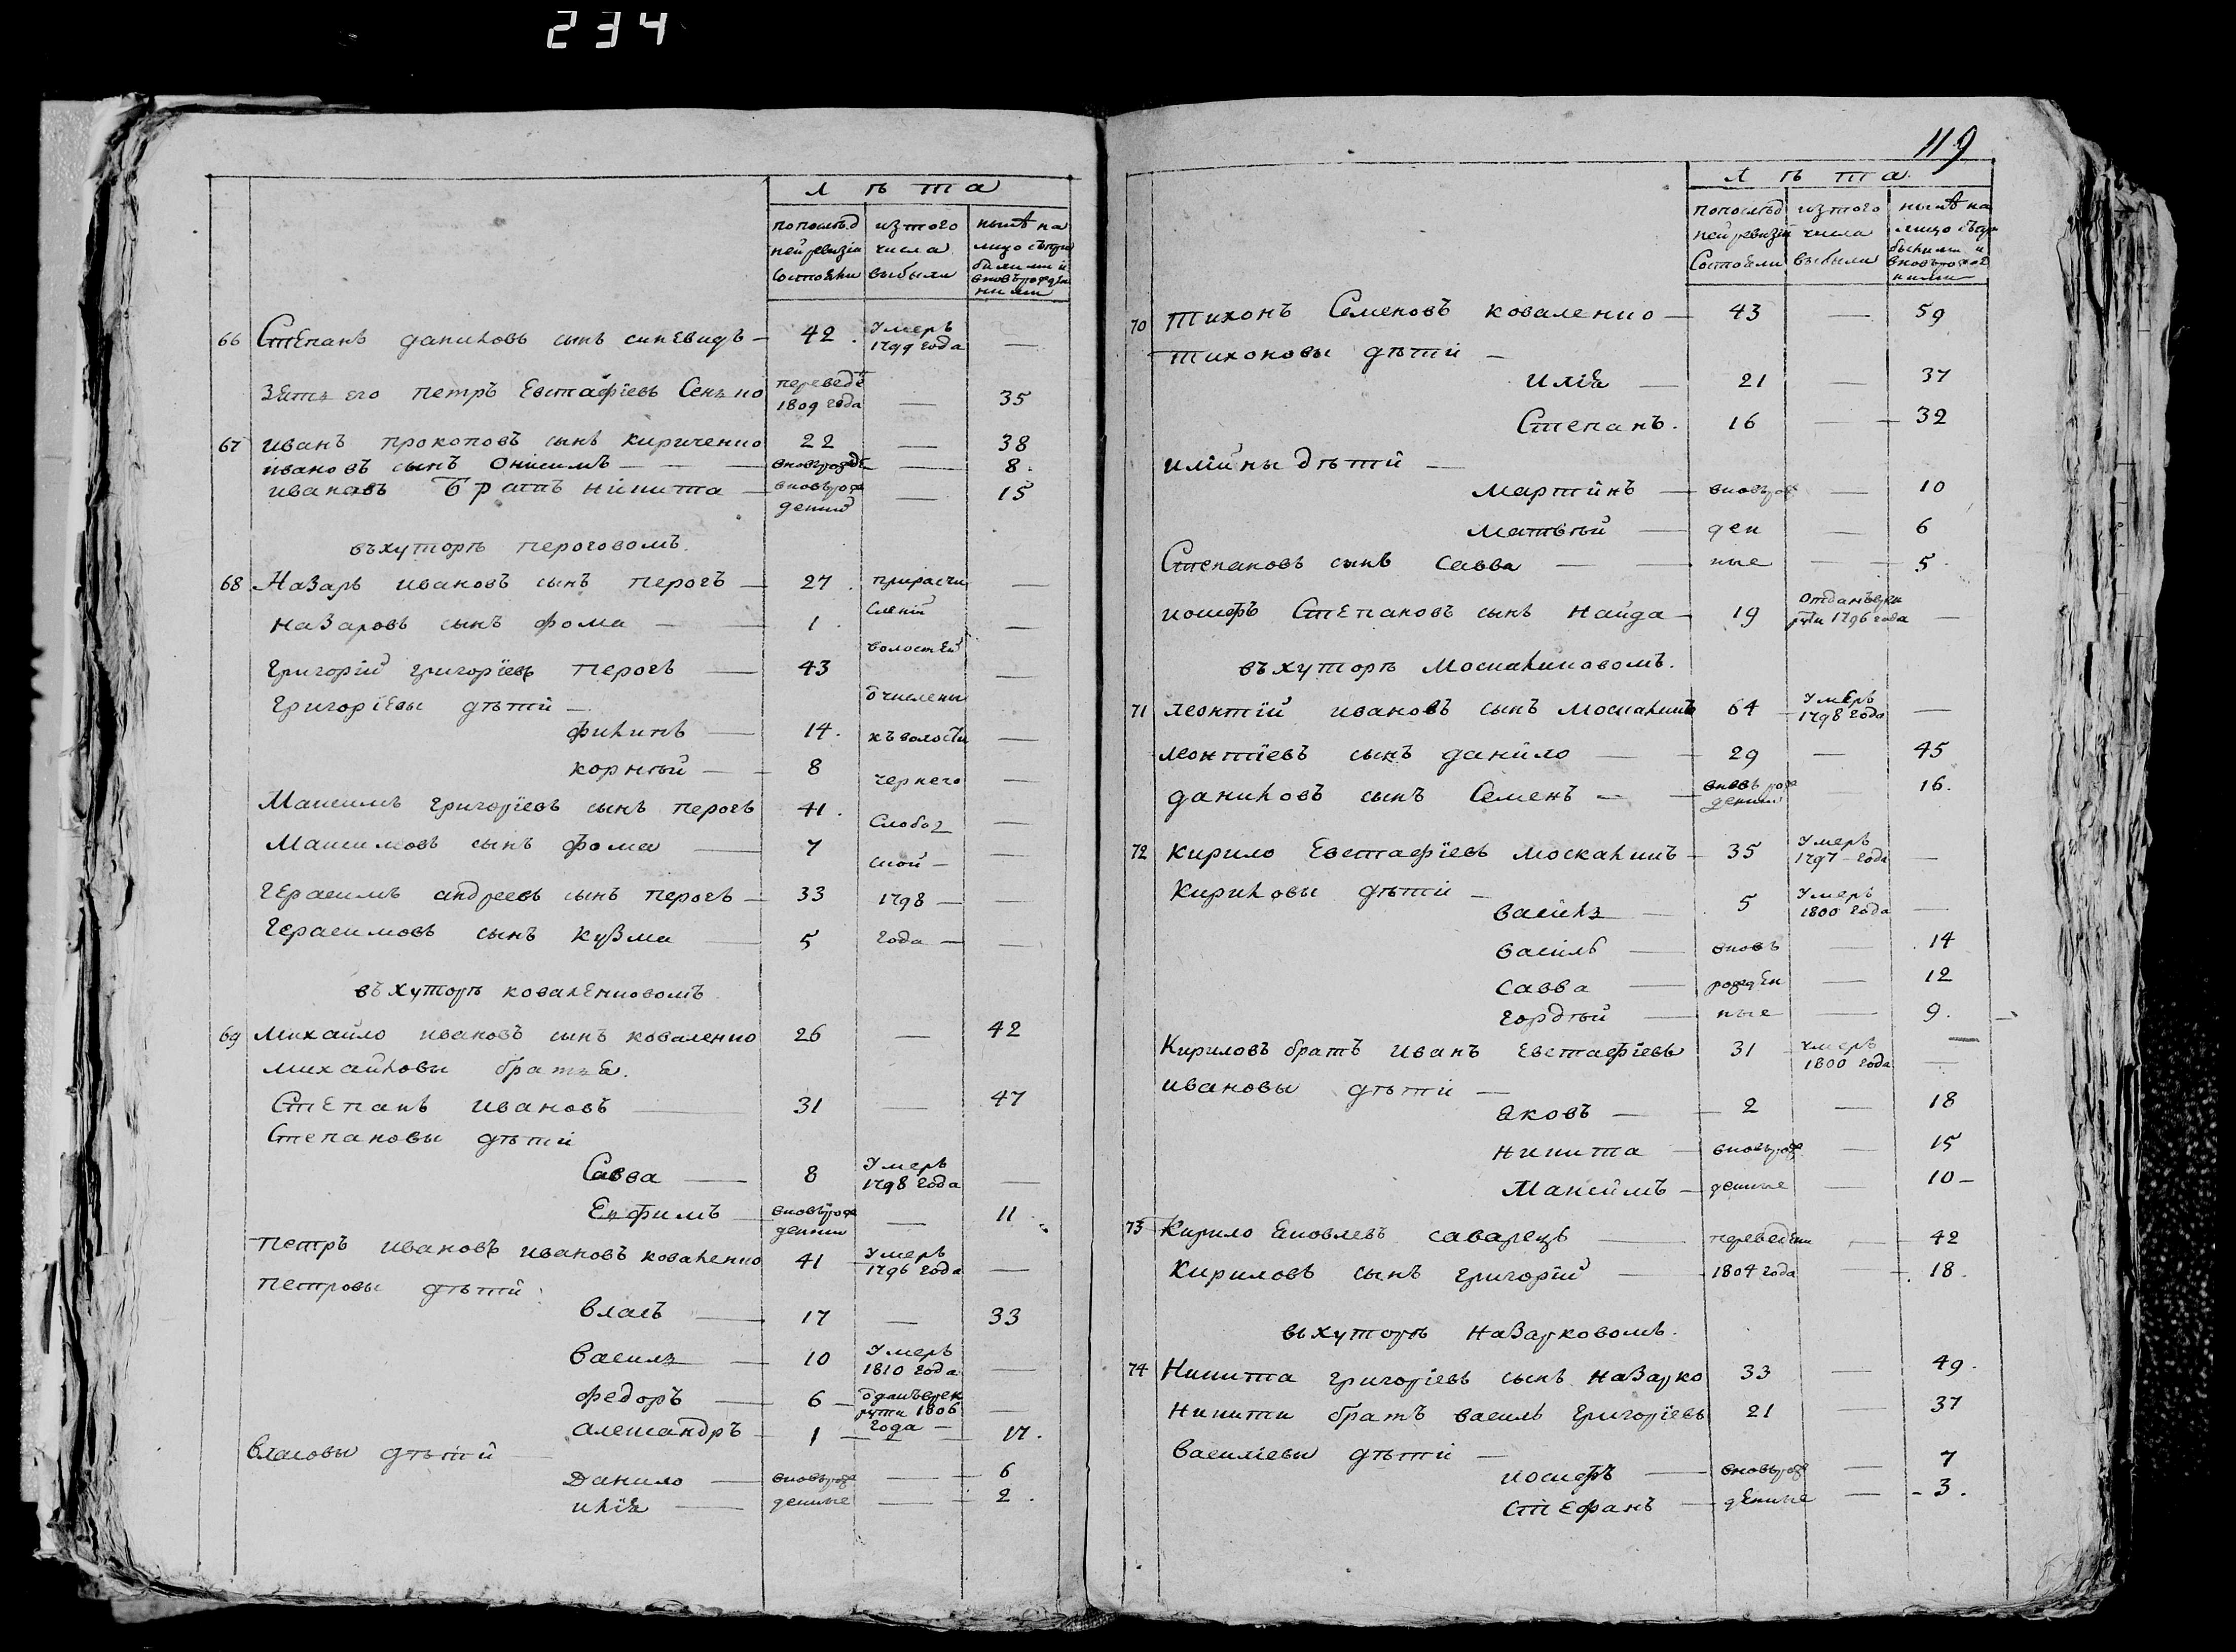 234
лѣта
попослѣд ней ревизіи состояли
изтого числа выбыли
нынѣ на лицо съ при былыми и вновьрожден ными
66 Степанъ даниловъ сынъ синевидъ — 42 . Умеръ 1799 года —
Зять его петръ Евстафіевъ Сенько переведе 1809 года — 35
67 иванъ прокоповъ сынъ кириченко 22 — 38
ивановъ сынъ Онисимъ — — — вновьрожде — 8.
ивановъ Братъ никита — вновьрож денный — 15
въхуторѣ пероговомъ.
68 Назаръ ивановъ сынъ перогъ — 27 . прирасчи —
назаровъ сынъ фома — 1 . сленій —
волостей
Григорій григоріевъ перогъ — 43 —
Григоріевы дѣти — очислены
филипъ — 14. къ волости —
корнѣй — 8 чернего —
Максимъ григоріевъ сынъ перогъ 41. Слобод —
Максимовъ сынъ фома — 7 ской — —
Герасимъ андреевъ сынъ перогъ — 33 1798 — —
Герасимовъ сынъ кузма — 5 года — —
въхуторѣ коваленковомъ
69 михайло ивановъ сынъ коваленко 26 — 42
михайловы братья.
Степанъ ивановъ — 31 — 47
Степановы дѣти
Савва — 8 Умеръ 1798 года —
Евфимъ — вновьрож денный — 11
петръ ивановъ ивановъ коваленко 41 Умеръ 1796 года —
петровы дѣти
власъ — 17 — 33
василь — 10 Умеръ 1810 года —
федоръ — 6 — оданъврек руты 1806 года — —
александръ — 1 — — 17.
власовы дѣти —
Данило — вновьрож — 6
илія — денные — 2 .
119
лѣта.
попослѣд ней ревизіи Состояли
изтого числа выбыли
нынѣ на лицо съпри былыми и вновьрожден ными
70 Тихонъ Семеновъ коваленко — 43 — 59
тихоновы дѣти —
илія — 21 — 37
Степанъ. 16 — 32
илійны дѣти —
мартинъ — вновьрож — 10
матвѣй — ден — 6
Степановъ сынъ савва — — ные — 5.
иосифъ Степановъ сынъ найда — 19 отданъврек руты 1796 года —
въхуторѣ москаликовомъ.
71 леонтій ивановъ сынъ москаликъ 64 Умеръ 1798 года —
леонтіевъ сынъ данило — 29 — 45
даниловъ сынъ Семенъ — вновь рож денный — 16.
72 кирило Евстафіевъ москаликъ — 35 Умеръ 1797 — года —
кириловы дѣти —
василь — 5 Умеръ 1800 года —
василь — вновь — 14
савва — рожден — 12
гордѣй — ные — 9.
Кириловъ братъ иванъ Евстафіевъ 31 умеръ 1800 года —
ивановы дѣти —
яковъ — 2 — 18
никита — вновьрож — 15
Максимъ — денные — 10 —
73 Кирило Яковлевъ саварецъ — переведены — 42
Кириловъ сынъ григорій — 1804 года — 18.
въхуторѣ назарковомъ.
74 Никита григоріевъ сынъ назарко 33 — 49.
никити братъ василь григоріевъ 21 — 37
василіевы дѣти —
иосифъ — вновьрож — 7
стефанъ — денные — 3.